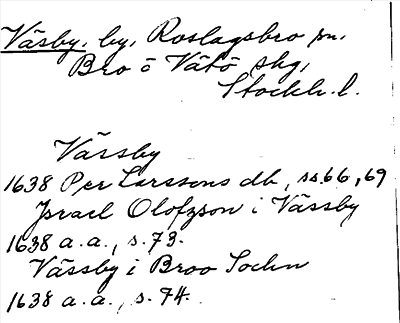 Väsby, by, Roslagsbro sn,
Bro o Vätö skg,
Stockh. l.
Vässby
1638 Per Larssons db, ss. 66, 69
Jsrael Olofzson i Vässby
1638 a.a., s. 73.
Vässby i Broo Sochn
1638 a.a., s. 74.